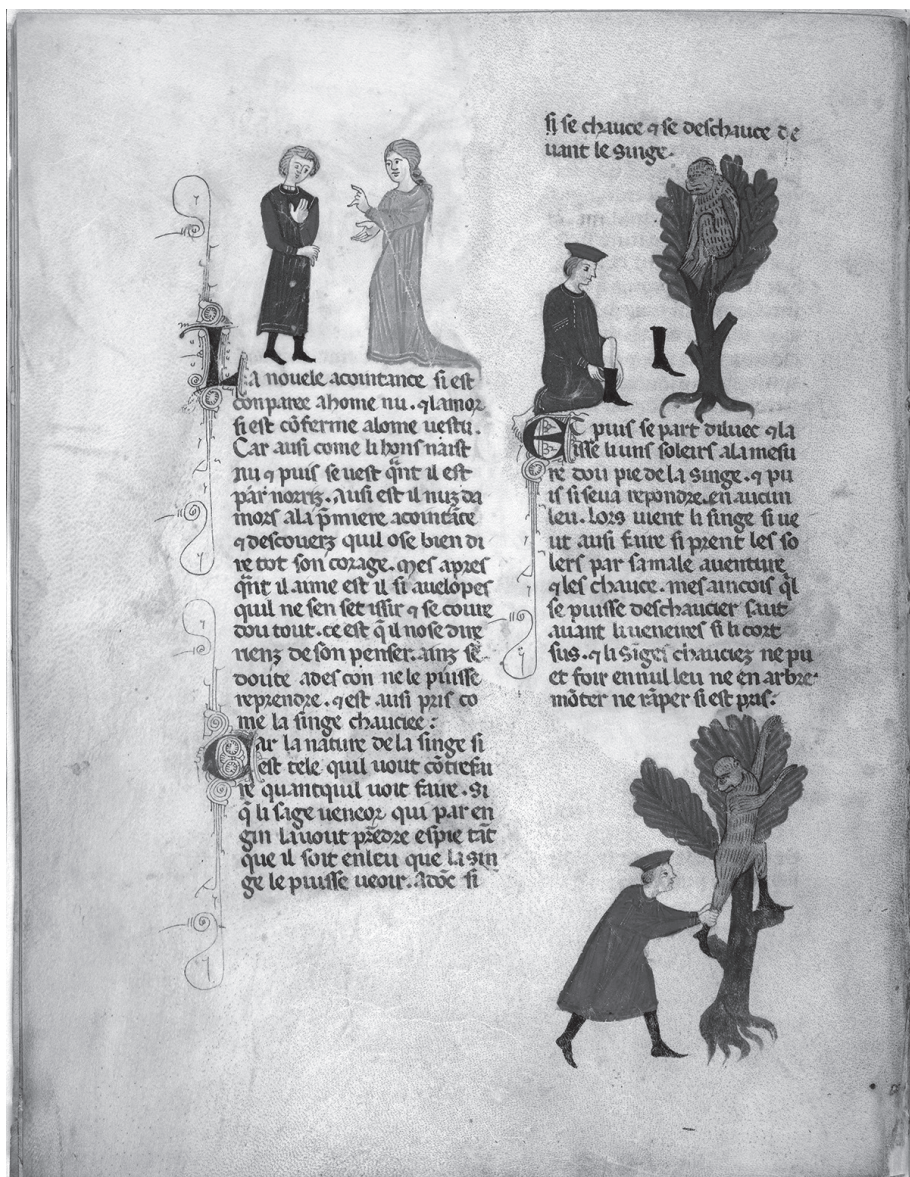 La nouele acointance si est
conparee a home nu. ⁊ lamor
si est cōferme alome uestu.
Car ausi come li hons naist
nu ⁊ puis se uest q̄nt il est
par norriz. Ausi est il nuz da
mors a la p̄miere acointāce
⁊ descouerz quil ose bien di
re tot son corage. Mes apres
q̄nt il aime est il si auelopes
quil ne sen set issir ⁊ se coure
dou tout. ce est q̄ il nose dire
rienz de son penser. ainz se
doute ades con ne le puisse
reprendre. ⁊ est ausi pris co
me la singe chauciee:
Car la nature de la singe si
est tele quil uout cōtrefai
re quantquil uoit faire. Si
q̄ li sage ueneor qui par en
gin la uout prēdre espie tāt
que il soit en leu que la sin
ge le puisse ueoir. adōc si
si se chauce ⁊ se deschauce de
uant le singe.
Et puis se part diluec ⁊ la
isse li uns solers a la mesu
re dou pie de la singe. ⁊ pu
is si se ua repondre. en aucun
leu. Lors uient li singe si ue
ut ausi faire si prent les so
lers par sa male auenture
⁊ les chauce. mes aincois q̄l
se puisse deschaucier saut
auant li ueneires si li cort
sus. ⁊ li singes chauciez ne pu
et foir en nul leu ne en arbre
mōter ne rāper si est pris: